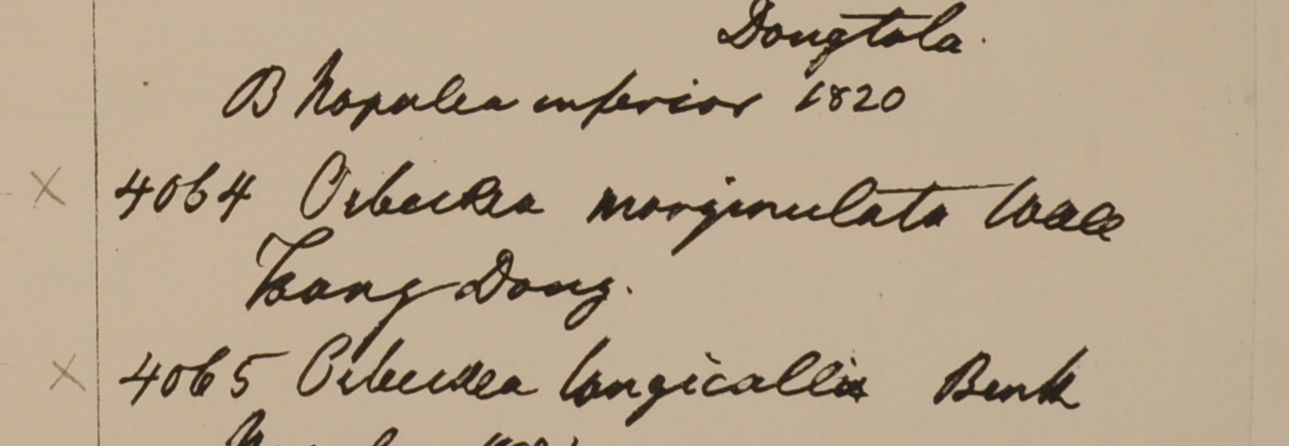 Dongtola.
B Napalea inferior 1820
× 4064 Osbeckea marginulata Wall
Tsang Dong.
× 4065 Osbeckea longicallis Benth